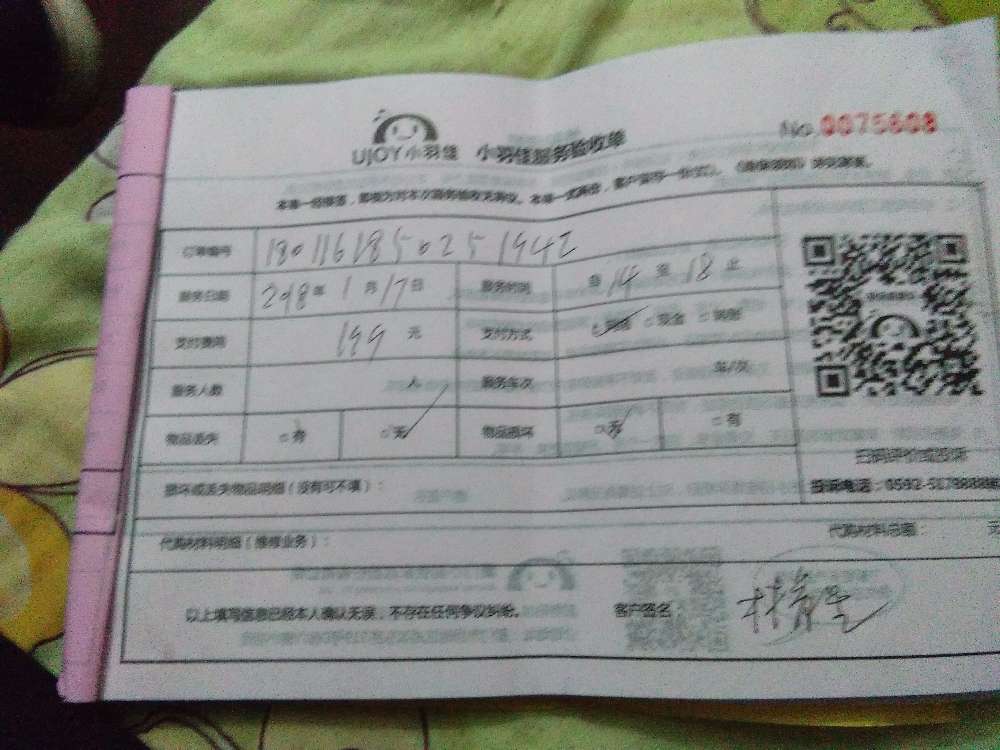 UJOY小羽佳 小羽佳服务验收单 No.0075608
本单一经签署，即视为对本次服务验收无异议。本单一式两份，客户留存一份
订单编号 180116185025194
服务日期 2018年1月17日 服务时间 自14至18止
支付费用 199元 支付方式 现金
服务人数 人 服务车次 车/次
物品丢失 □有 □无 物品损坏 □无 □有
扫码评价或投诉
损坏或丢失物品明细（没有可不填）：
投诉电话：0592-
代购材料明细（维修业务）： 代购材料总额： 元
以上填写信息已经本人确认无误，不存在任何争议纠纷。 客户签名